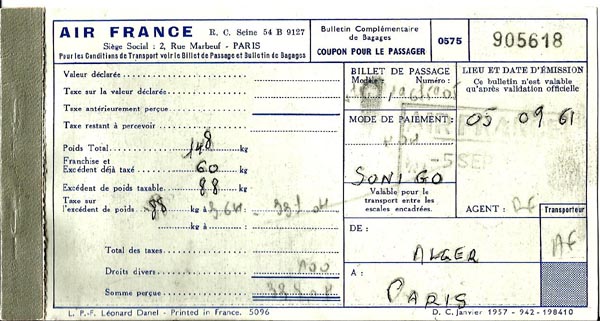 AIR FRANCE R. C. Seine 54 B 9127
Siège Social : 2, Rue Marbeuf - PARIS
Pour les Conditions de Transport voir le Billet de Passage et Bulletin de Bagages
Bulletin Complémentaire
de Bagages
COUPON POUR LE PASSAGER
0575
905618
Valeur déclarée
Taxe sur la valeur déclarée
Taxe antérieurement perçue
Taxe restant à percevoir
Poids Total 148 kg
Franchise et
Excédent déjà taxé 60 kg
Excédent de poids taxable 88 kg
Taxe sur
l'excédent de poids 88 kg à
kg à
Total des taxes
Droits divers 100
Somme perçue
BILLET DE PASSAGE
Modèle : Numéro :
MODE DE PAIEMENT :
SONIGO
Valable pour le
transport entre les
escales encadrées.
LIEU ET DATE D'ÉMISSION
Ce bulletin n'est valable
qu'après validation officielle
AIR FRANCE
05 09 61
- 5 SEP
AGENT : AF
Transporteur
DE :
ALGER
AF
A :
PARIS
L. P.-F. Léonard Danel - Printed in France. 5096
D. C. Janvier 1957 - 942 - 198410